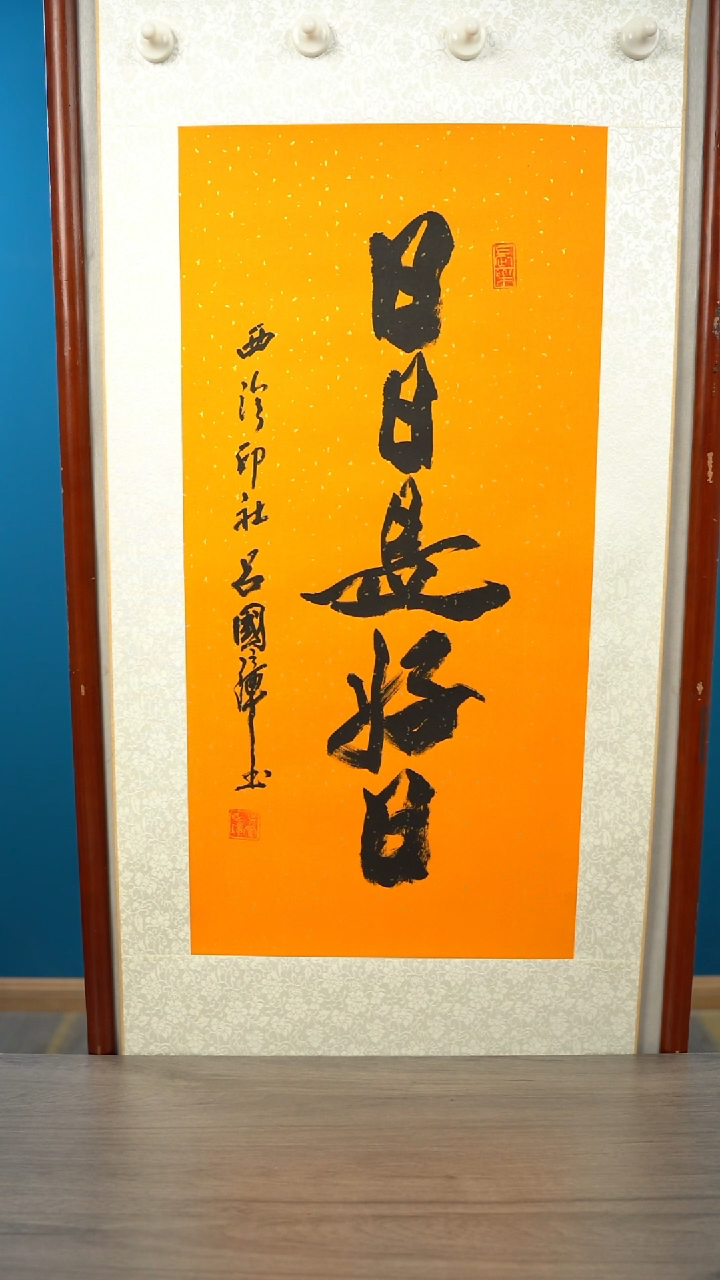 日日是好日
西泠印社 呂國璋書